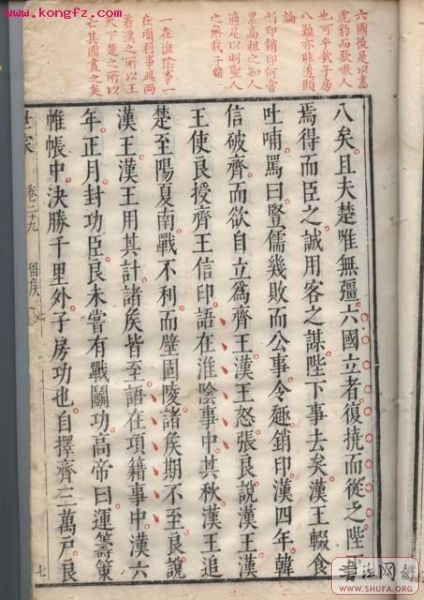 www.kongfz.com
六國後是以畫
虎豹而歐噉人
也可乎哉子房
八難亦
論
刻印銷印何嘗
累高祖之知人
適足以明聖人
之無我子
一在淮陰事一
在項羽事此兩
着漢之所以王
天下楚之所以
亡其國畫之矣
八矣且夫楚唯無彊六國立者復撓而從之陛下
焉得而臣之誠用客之謀陛下事去矣漢王輟食
吐哺罵曰豎儒幾敗而公事令趣銷印漢四年韓
信破齊而欲自立爲齊王漢王怒張良說漢王漢
王使良授齊王信印語在淮陰事中其秋漢王追
楚至陽夏南戰不利而壁固陵諸矦期不至良說
漢王漢王用其計諸矦皆至語在項籍事中漢六
年正月封功臣良未嘗有戰鬭功高帝曰運籌策
帷帳中決勝千里外子房功也自擇齊三萬戶良
世家 卷二九 留矦 七
書法网
WWW.SHUFA.ORG